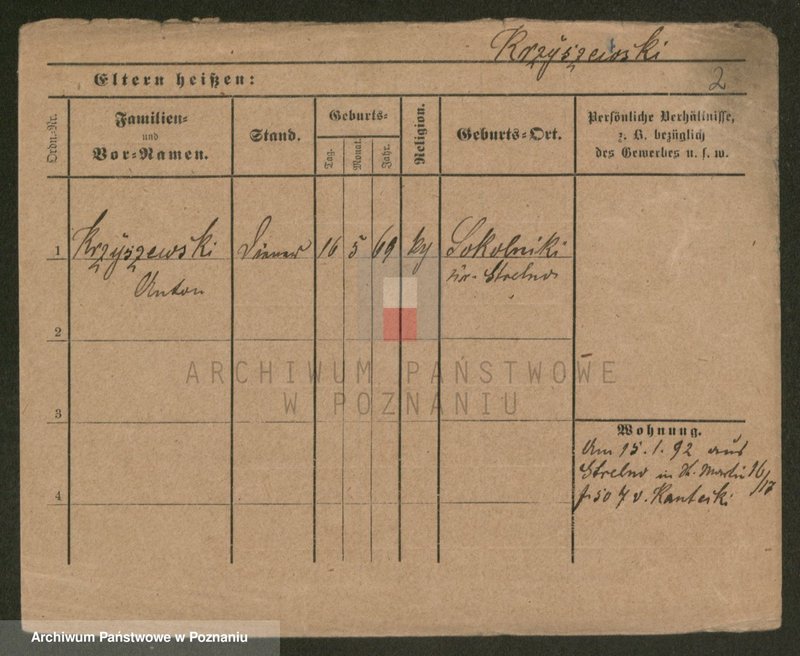 Krzyszewski
2
Eltern heißen:
Ordn.-Nr.
Familien-
und
Vor-Namen.
Stand.
Geburts-
Tag.
Monat.
Jahr.
Religion.
Geburts-Ort.
Persönliche Verhältnisse,
z. B. bezüglich
des Gewerbes u. s. w.
1 Krzyszewski Diener 16 5 69 Sokolniki
Anton Kr. Strelno
2
3
4
Wohnung.
Am 15.1.92 aus
Strelno in St. Martin 16/17
v. Kantecki
ARCHIWUM PAŃSTWOWE
W POZNANIU
Archiwum Państwowe w Poznaniu